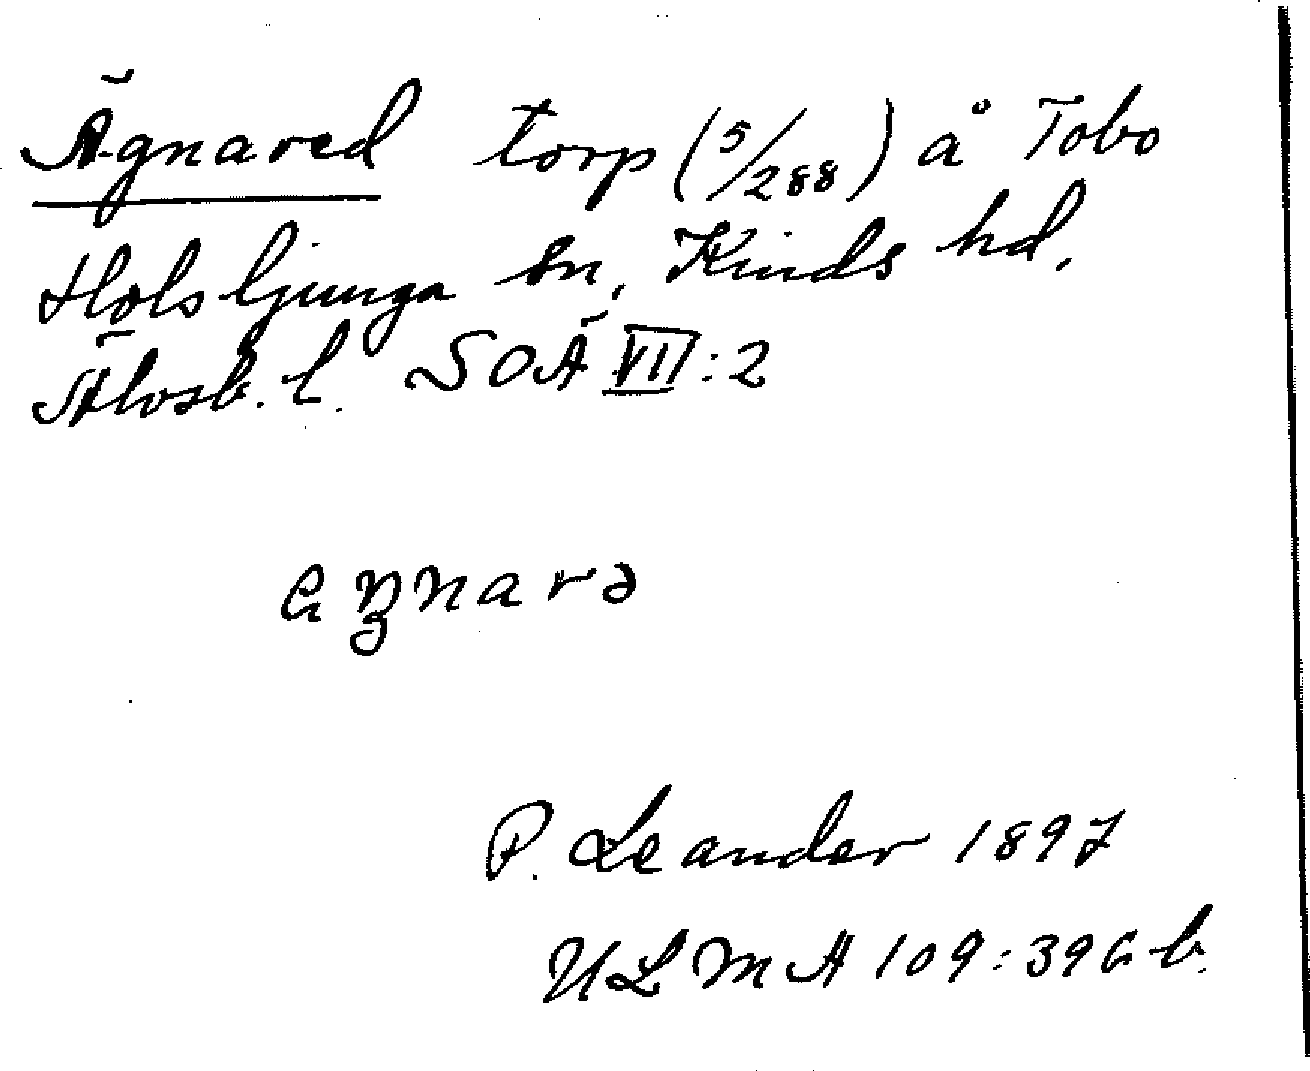 Ägnared torp (5/288) å Tobo
Holsljunga sn, Kinds hd,
Älvsb. l. SOÄ VII:2
P. Leander 1897
ULMA 109:396 b.